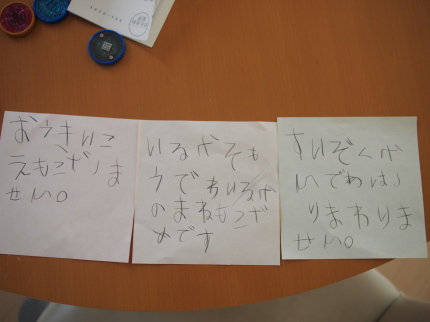 おうきいこ
えもござりま
せん。
いるかそも
うでわいるか
のまねもござ
めです
すいぞくか
んでわはし
りまわりま
せん。